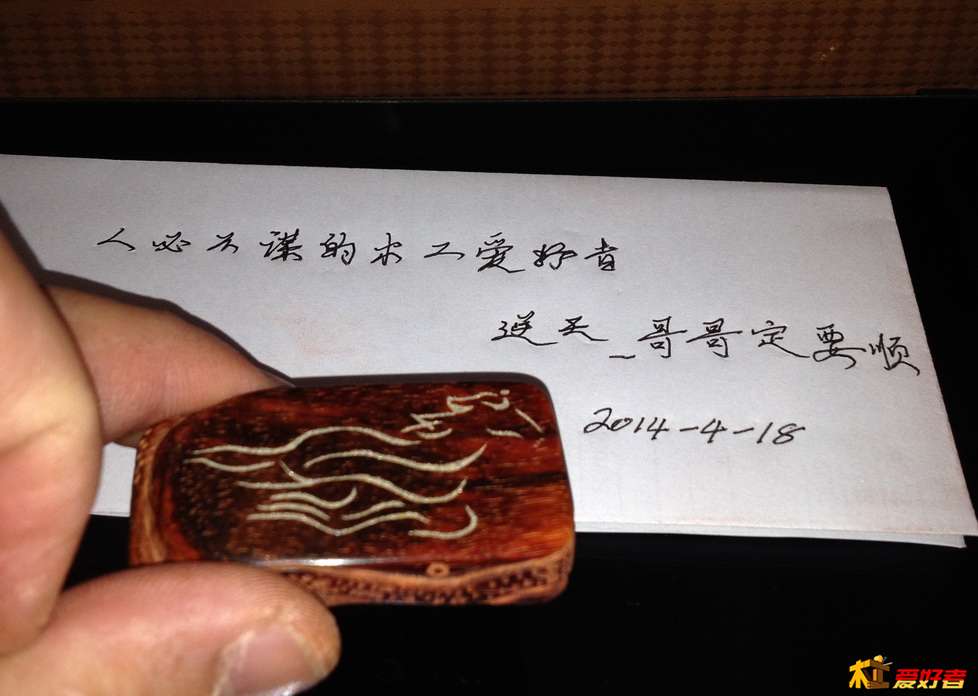 人必不谋的木工爱好者
逆天_哥哥定要顺
2014-4-18
木工爱好者